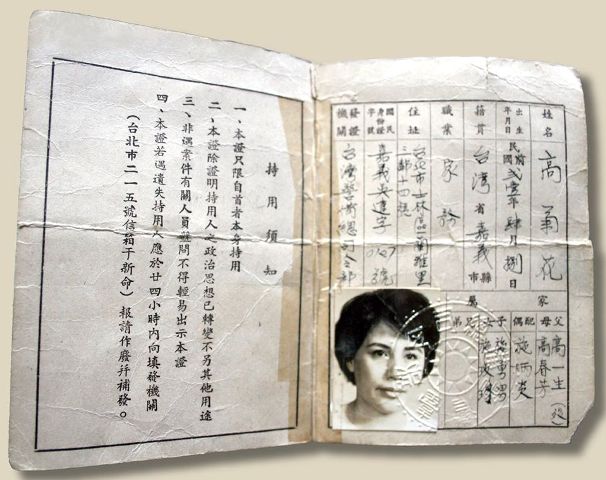 姓名 高菊花
出生年月日 民國貳壹年肆月捌日
籍貫 台灣省嘉義縣市
職業 家務
住址 台北市士林區蘭雅里
三鄰十四號
國民身份證字號 嘉義 字 號
發證機關 台灣警備總司令部
家屬
父 高一生(歿)
母 高春芳
配偶 施炳炎
子女 施勇男
施玫
兄弟
持用須知
一、本證只限自首者本身持用
二、本證除證明持用人之政治思想已轉變不另其他用途
三、非遇案件有關人員盤問不得輕易出示本證
四、本證若遇遺失持用人應於廿四小時內向填發機關
(台北市二一五號信箱于新命)報請作廢并補發。